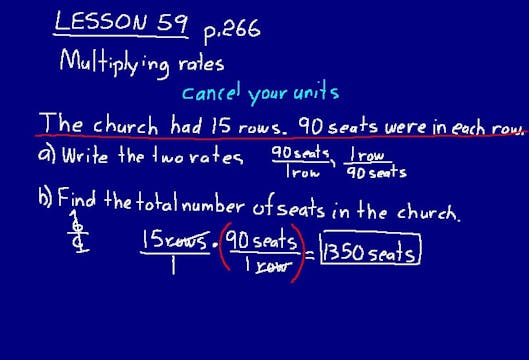 LESSON 59 p.266
Multiplying rates
cancel your units
The church had 15 rows. 90 seats were in each row.
a) Write the two rates 90 seats / 1 row, 1 row / 90 seats
b) Find the total number of seats in the church.
15 rows / 1 · (90 seats / 1 row) = 1350 seats